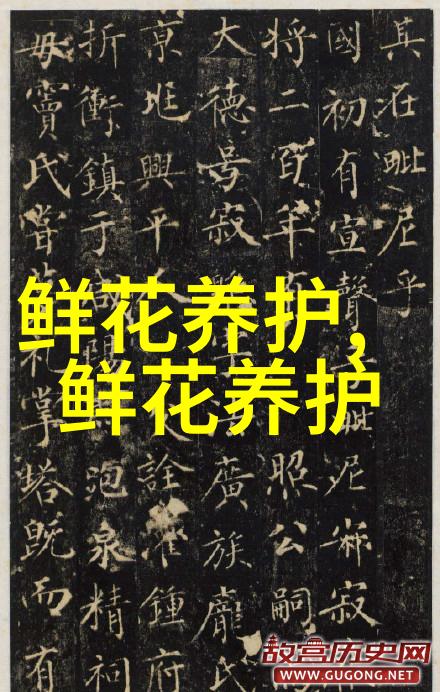 其在毗尼乎
國初有宣聲毗尼寂
將二百年照公嗣
大德号寂廣族龐氏
京兆興平人詮鍾府
折衝鎮于泉精祠
毋竇氏嘗礼掌塔既而有
鲜花养护,
鲜花养护
故宫历史网
WWW.GUGONG.NET